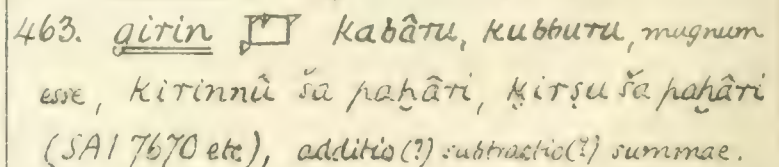 463. girin 𒆸 kabâru, kubburu, mugnum
esse, kirinnû ša paḫâri, ḳirṣu ša paḫâri
(SAI 7670 etc), additio(?) subtractio(?) summae.